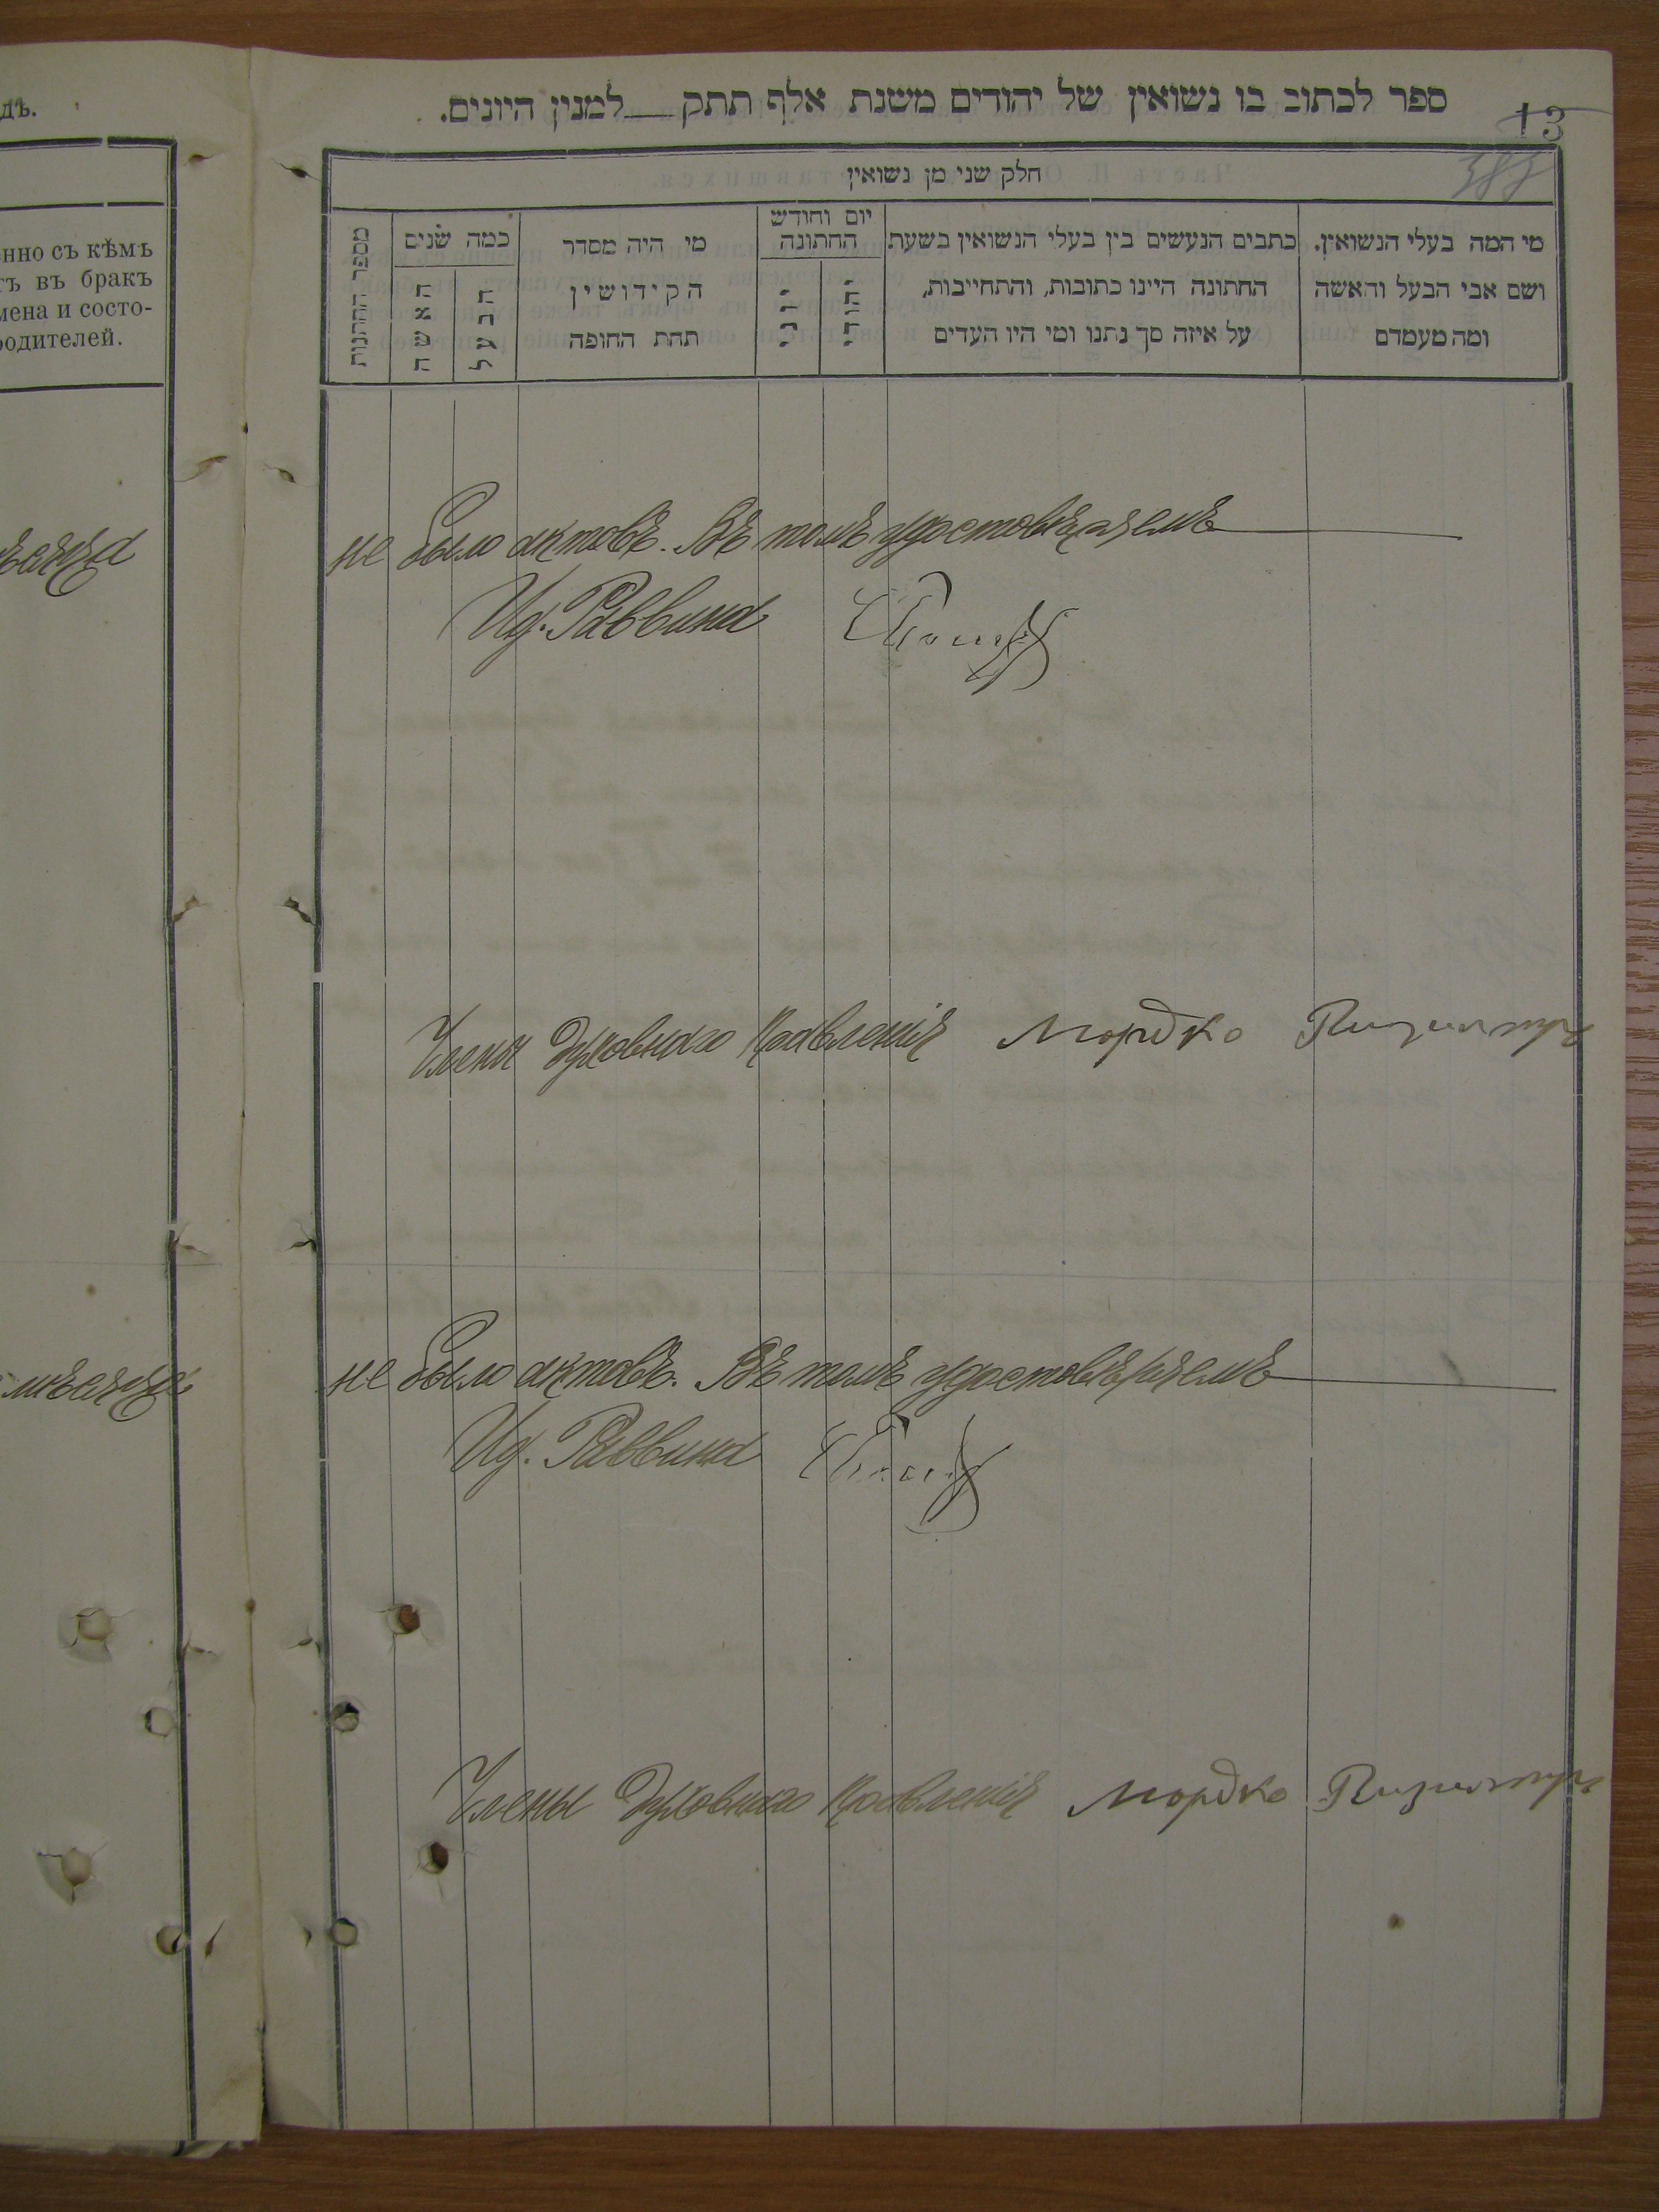 дъ.
енно съ кѣмъ
тъ въ бракъ
мена и состо-
родителей.
мѣсяца
13
388
ספר לכתוב בו נשואין של יהודים משנת אלף תתק__למנין היונים.
חלק שני מן נשואין
מי המה בעלי הנשואין. ושם אבי הבעל והאשה ומה מעמדם
כתבים הנעשים בין בעלי הנשואין בשעת החתונה היינו כתובות, והתחייבות, על איזה סך נתנו ומי היו העדים
יום וחודש החתונה
יהודי
יוני
מי היה מסדר הקידושין תחת החופה
כמה שנים
הבעל
האשה
מספר החתונות
не было актовъ. Въ томъ удостовѣряемъ
Ид. Раввина
Члены Духовнаго Правленія Мордко
мѣсяцѣ не было актовъ. Въ томъ удостовѣряемъ
Ид. Раввина
Члены Духовнаго Правленія Мордко